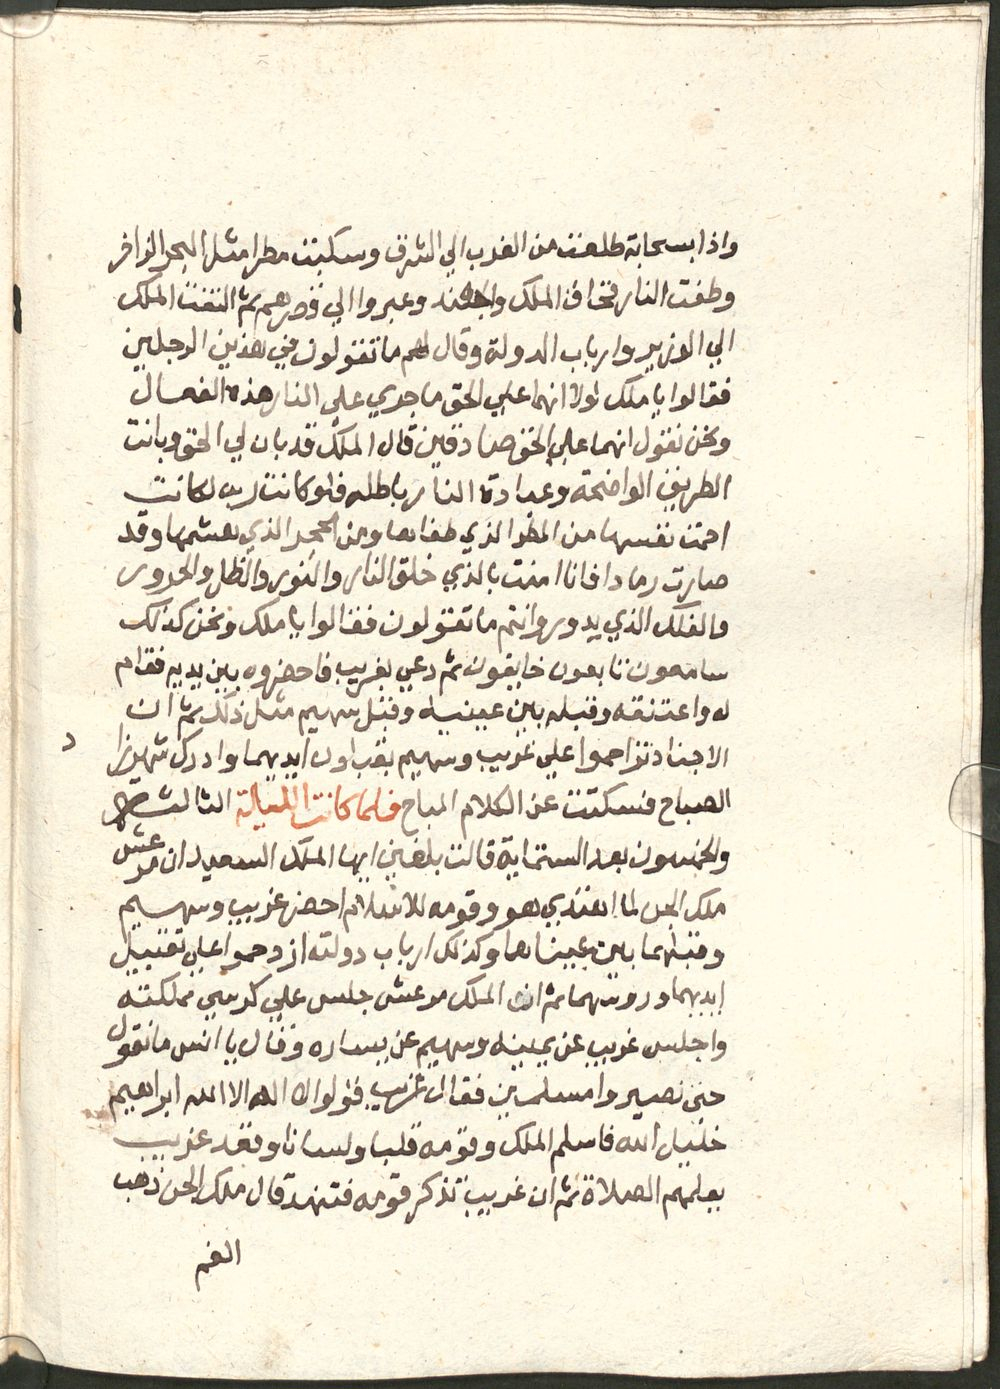 واذا بسحابة طلعت من الغرب الي الشرق وسكبت مطرا مثل البحر الزاخر
وطفت النار فخاف الملك والجند وعبروا الي قصرهم ثم التفت الملك
الي الوزير وارباب الدولة وقال لهم ما تقولون في هذين الرجلين
فقالوا يا ملك لولا انهما علي الحق ما جري علي النار هذه الفعال
ونحن نقول انهما علي الحق صادقين قال الملك قد بان لي الحق وبانت
الطريق الواضحة وعبادة النار باطله فلو كانت ربه لكانت
احمت نفسها من المطر الذي طفاها ومن الحجر الذي هشمها وقد
صارت رمادا فانا امنت بالذي خلق النار والنور والظل والحرور
والفلك الذي يدور وانتم ما تقولون فقالوا يا ملك ونحن كذلك
سامعون تابعون خايفون ثم دعي بغريب فاحضروه بين يديه فقام
له واعتنقه وقبله بين عينيه وقبل سهيم مثل ذلك ثم ان
الاجناد تزاحموا علي غريب وسهيم يقبلون ايديهما وادرك شهرزاد
الصباح فسكتت عن الكلام المباح فلما كانت الليلة الثالثة
والخمسون بعد الستماية قالت بلغني ايها الملك السعيد ان مرعش
ملك الجن لما اهتدي هو وقومه للاسلام احضر غريب وسهيم
وقبلهما بين عيناهما وكذلك ارباب دولته ازدحموا علي تقبيل
ايديهما وروسهما ثم ان الملك مرعش جلس علي كرسي مملكته
واجلس غريب عن يمينه وسهيم عن يساره وقال يا انس ما نقول
حتي نصيروا مسلمين فقال غريب قولوا لا اله الا الله ابراهيم
خليل الله فاسلم الملك وقومه قلبا ولسانا وقعد غريب
يعلمهم الصلاة ثم ان غريب تذكر قومه فتنهد قال ملك الجن ذهب
الغم